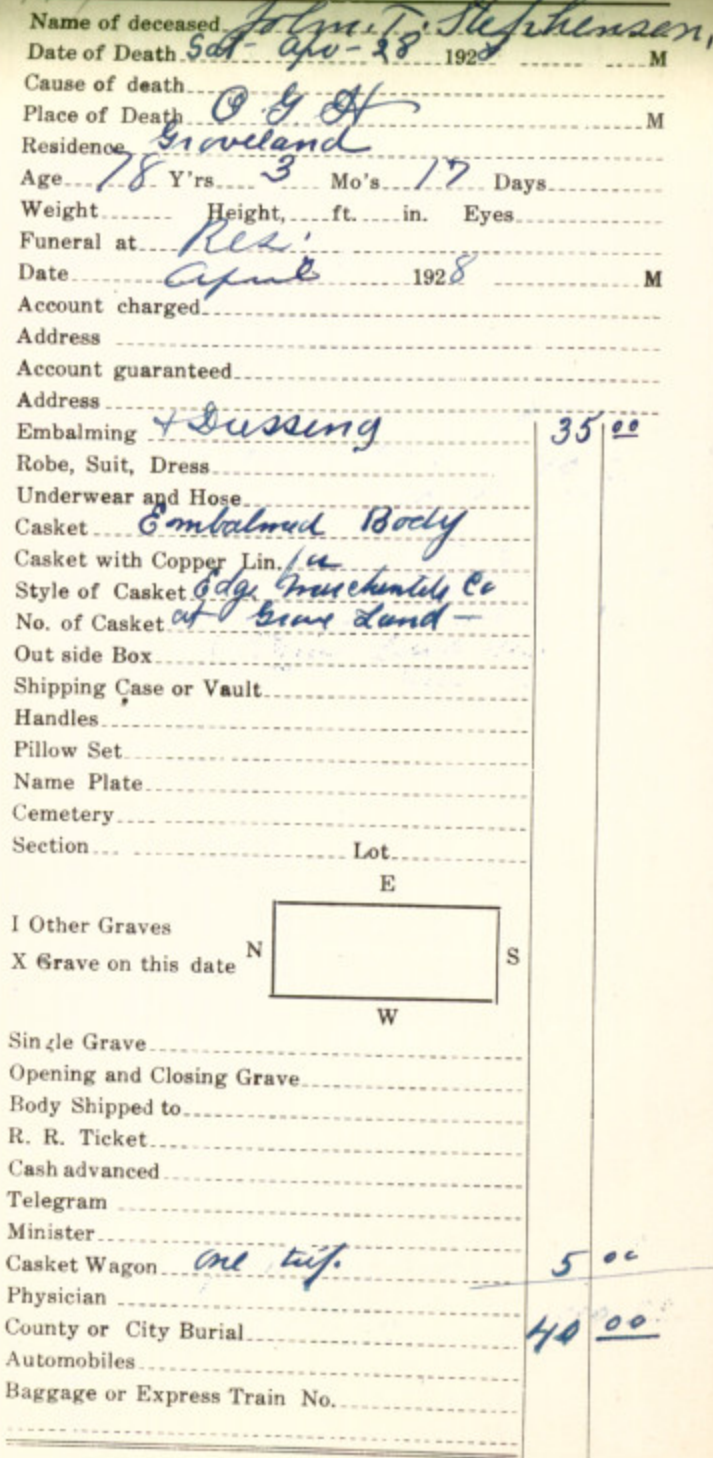 Name of deceased John. T. Stephenson,
Date of Death Sat- Apr- 28 1928 M
Cause of death
Place of Death O G H M
Residence Groveland
Age 78 Y'rs 3 Mo's 17 Days
Weight Height, ft. in. Eyes
Funeral at Res.
Date April 1928 M
Account charged
Address
Account guaranteed
Address
Embalming + Dressing 35 00
Robe, Suit, Dress
Underwear and Hose
Casket Embalmed Body
Casket with Copper Lin.
Style of Casket Edge Merchantile Co
No. of Casket at Grove Land -
Out side Box
Shipping Case or Vault
Handles
Pillow Set
Name Plate
Cemetery
Section Lot
E
I Other Graves
N S
X Grave on this date
W
Single Grave
Opening and Closing Grave
Body Shipped to
R. R. Ticket
Cash advanced
Telegram
Minister
Casket Wagon one trip. 5 00
Physician
County or City Burial 40 00
Automobiles
Baggage or Express Train No.